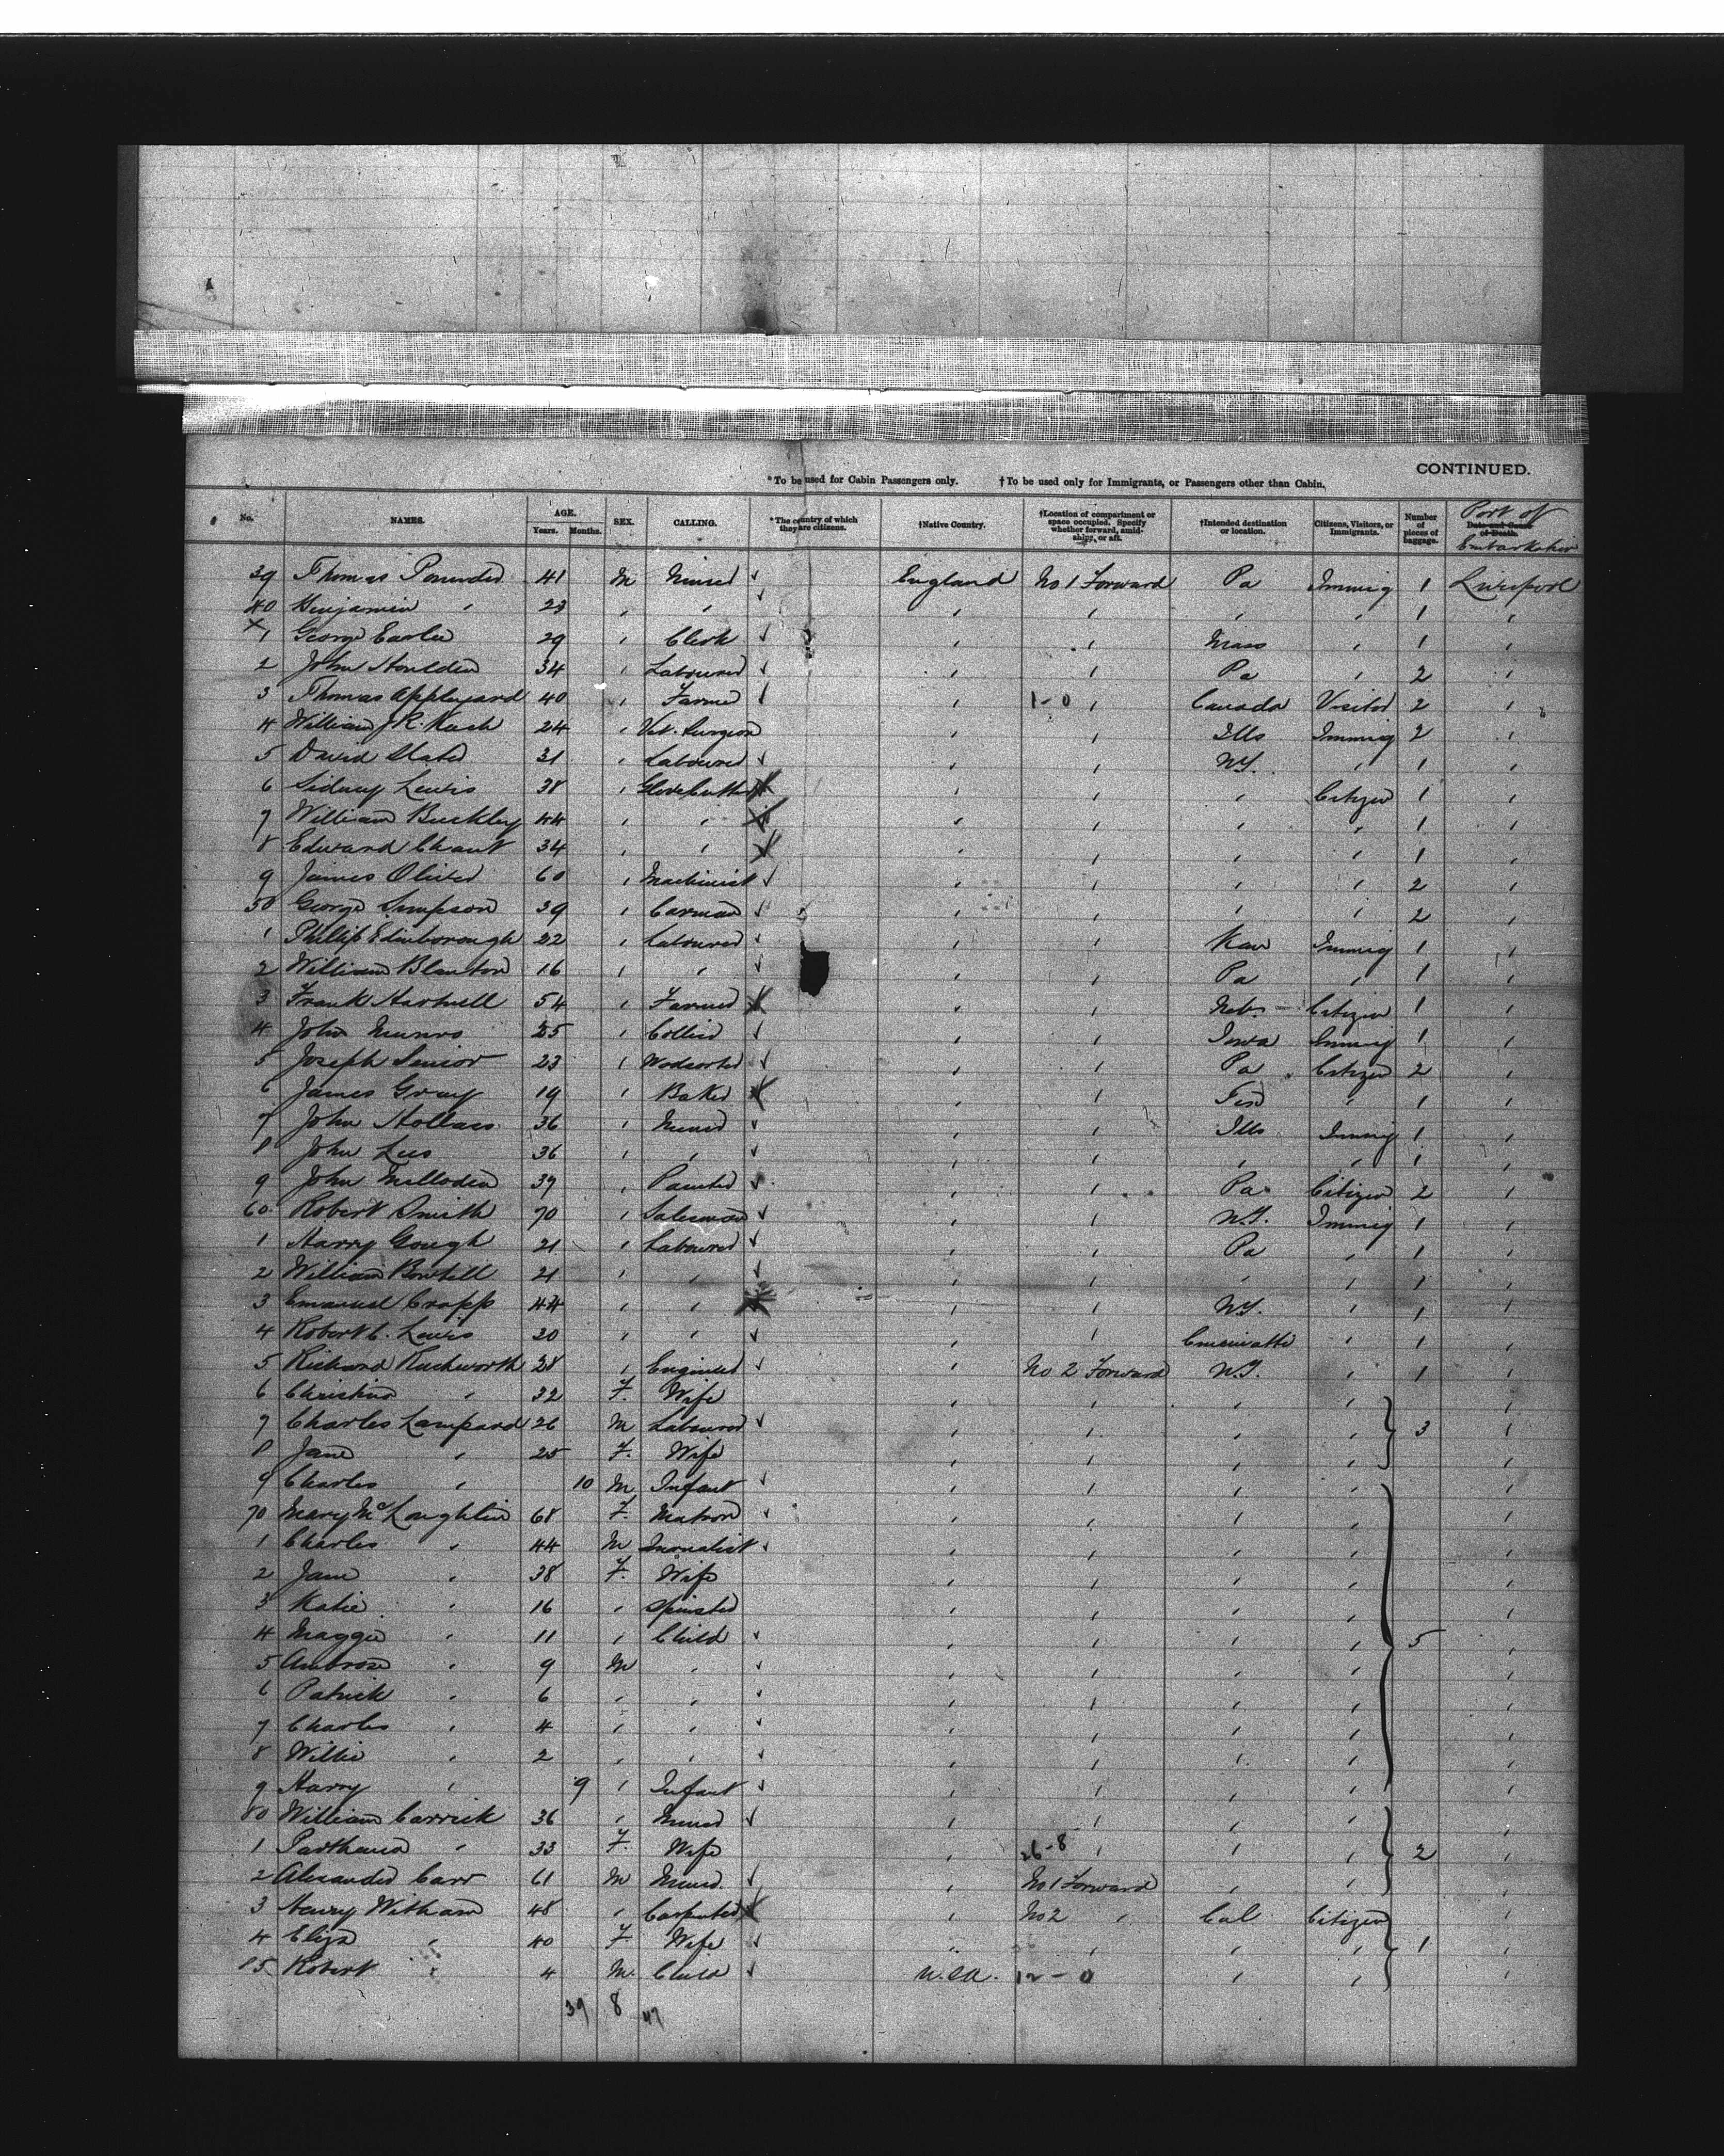 CONTINUED.
*To be used for Cabin Passengers only. †To be used only for Immigrants, or Passengers other than Cabin.
No. NAMES. AGE. Years. Months. SEX. CALLING. *The country of which they are citizens. †Native Country. †Location of compartment or space occupied. Specify whether forward, amidships, or aft. †Intended destination or location. Citizens, Visitors, or Immigrants. Number of pieces of baggage. Date and Cause of Death. Port of Embarkation
39 Thomas 41 M Miner England No 1 Forward Pa Immig 1 Liverpool
40 Benjamin " 23 " " " " " " 1 "
1 George 29 " Clerk " " Mass " 1 "
2 John Houlden 34 " Labourer " " Pa " 2 "
3 Thomas Appleyard 40 " Farmer " 1-0 " Canada Visitor 2 "
4 William J R. 24 " Vet. Surgeon " " Ills Immig 2 "
5 David Slater 31 " Labourer " " NY. " 1 "
6 Sidney Lewis 38 " Glove Cutter " " " Citizen 1 "
7 William Buckley 44 " " " " " " 1 "
8 Edward Chant 34 " " " " " " 1 "
9 James Oliver 60 " Machinist " " " " 2 "
50 George Simpson 39 " Carman " " " " 2 "
1 Phillip Edinborough 22 " Labourer " " Kan Immig 1 "
2 William Blanton 16 " " " " Pa " 1 "
3 Frank Hartwell 54 " Farmer " " Neb Citizen 1 "
4 John Munro 25 " Collier " " Iowa Immig 1 "
5 Joseph Senior 23 " " " Pa Citizen 2 "
6 James Gray 19 " Baker " " " 1 "
7 John 36 " Miner " " Ills Immig 1 "
8 John Lees 36 " " " " " " 1 "
9 John 39 " Painter " " Pa Citizen 2 "
60 Robert Smith 70 " Salesman " " N.Y. Immig 1 "
1 Harry Gough 21 " Labourer " " Pa " 1 "
2 William Bowtell 21 " " " " " " 1 "
3 Emanuel Crapp 44 " " " " NY. " 1 "
4 Robert C. Lewis 30 " " " " Cincinatti " 1 "
5 Richard Rushworth 28 " Engineer " No 2 Forward N.Y. " 1 "
6 Christina " 32 F. Wife " " " " "
7 Charles Lampard 26 M Labourer " " " " 3 "
8 Jane " 25 F. Wife " " " " "
9 Charles " 10 M Infant " " " " "
70 Mary McLoughlin 68 F. Matron " " " " "
1 Charles " 44 M Journalist " " " " "
2 Jane " 38 F. Wife " " " " "
3 Katie " 16 " Spinster " " " " "
4 Maggie " 11 " Child " " " " 5 "
5 Ambrose " 9 M " " " " " "
6 Patrick " 6 " " " " " " "
7 Charles " 4 " " " " " " "
8 Willie " 2 " " " " " " "
9 Harry " 9 " Infant " " " " "
80 William Carrick 36 " Miner " " " " "
1 " 33 F. Wife " 26-8 " " " 2 "
2 Alexander Carr 61 M Miner. " No 1 Forward " " "
3 Henry Witham 48 " Carpenter " No 2 " Cal Citizen "
4 Eliza " 40 F. Wife " " " " 1 "
85 Robert " 4 M. Child U.S.A. 12-0 " " "
39 8 47